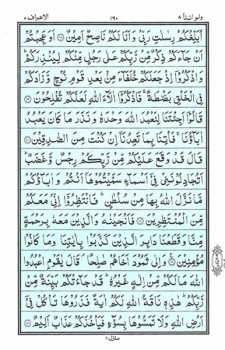 ولو اننا ٨ ١٩٠ الاعراف ٧
اُبَلِّغُكُمْ رِسٰلٰتِ رَبِّيْ وَاَنَا لَكُمْ نَاصِحٌ اَمِيْنٌ ۝ اَوَعَجِبْتُمْ
اَنْ جَآءَكُمْ ذِكْرٌ مِّنْ رَّبِّكُمْ عَلٰى رَجُلٍ مِّنْكُمْ لِيُنْذِرَكُمْ ؕ
وَاذْكُرُوْۤا اِذْ جَعَلَكُمْ خُلَفَآءَ مِنْۢ بَعْدِ قَوْمِ نُوْحٍ وَّزَادَكُمْ
فِي الْخَلْقِ بَصْۜطَةً ۚ فَاذْكُرُوْۤا اٰلَآءَ اللّٰهِ لَعَلَّكُمْ تُفْلِحُوْنَ ۝
قَالُوْۤا اَجِئْتَنَا لِنَعْبُدَ اللّٰهَ وَحْدَهٗ وَنَذَرَ مَا كَانَ يَعْبُدُ
اٰبَآؤُنَا ۚ فَاْتِنَا بِمَا تَعِدُنَاۤ اِنْ كُنْتَ مِنَ الصّٰدِقِيْنَ ۝
قَالَ قَدْ وَقَعَ عَلَيْكُمْ مِّنْ رَّبِّكُمْ رِجْسٌ وَّغَضَبٌ ؕ
اَتُجَادِلُوْنَنِيْ فِيْۤ اَسْمَآءٍ سَمَّيْتُمُوْهَاۤ اَنْتُمْ وَاٰبَآؤُكُمْ
مَّا نَزَّلَ اللّٰهُ بِهَا مِنْ سُلْطٰنٍ ؕ فَانْتَظِرُوْۤا اِنِّيْ مَعَكُمْ
مِّنَ الْمُنْتَظِرِيْنَ ۝ فَاَنْجَيْنٰهُ وَالَّذِيْنَ مَعَهٗ بِرَحْمَةٍ
مِّنَّا وَقَطَعْنَا دَابِرَ الَّذِيْنَ كَذَّبُوْا بِاٰيٰتِنَا وَمَا كَانُوْا
مُؤْمِنِيْنَ ۝ وَاِلٰى ثَمُوْدَ اَخَاهُمْ صٰلِحًا ۘ قَالَ يٰقَوْمِ اعْبُدُوا
اللّٰهَ مَا لَكُمْ مِّنْ اِلٰهٍ غَيْرُهٗ ؕ قَدْ جَآءَتْكُمْ بَيِّنَةٌ مِّنْ
رَّبِّكُمْ ؕ هٰذِهٖ نَاقَةُ اللّٰهِ لَكُمْ اٰيَةً فَذَرُوْهَا تَاْكُلْ فِيْۤ
اَرْضِ اللّٰهِ وَلَا تَمَسُّوْهَا بِسُوْٓءٍ فَيَاْخُذَكُمْ عَذَابٌ اَلِيْمٌ ۝
منزل ٢